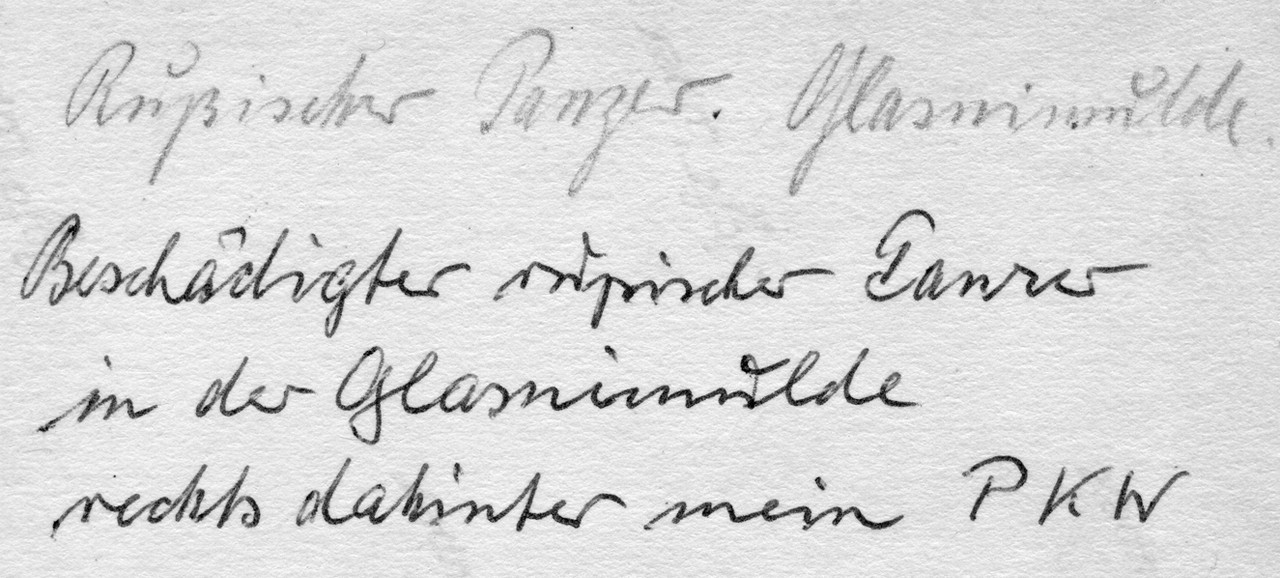 Rußischer Panzer. Glasnimulde.
Beschädigter rußischer Panzer
in der Glasnimulde
rechts dahinter mein PKW